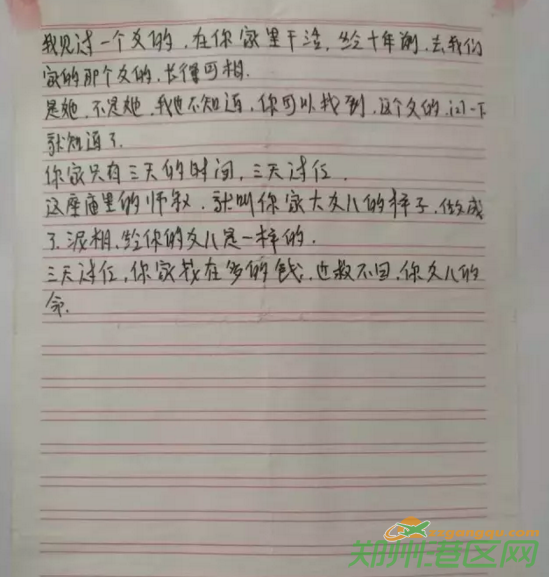 我见过一个女的,在你家里干活,给十年前,去我们
家的那个女的,长得可相.
是她,不是她,我也不知道,你可以找到,这个女的,问一下
就知道了.
你家只有三天的时间,三天过位.
这座庙里的师叔,就叫你家大女儿的样子,做成
了泥相,给你的女儿是一样的.
三天过位,你家我在多的钱,也救不回,你女儿的
命.
zegangqu.com
郑州港区网